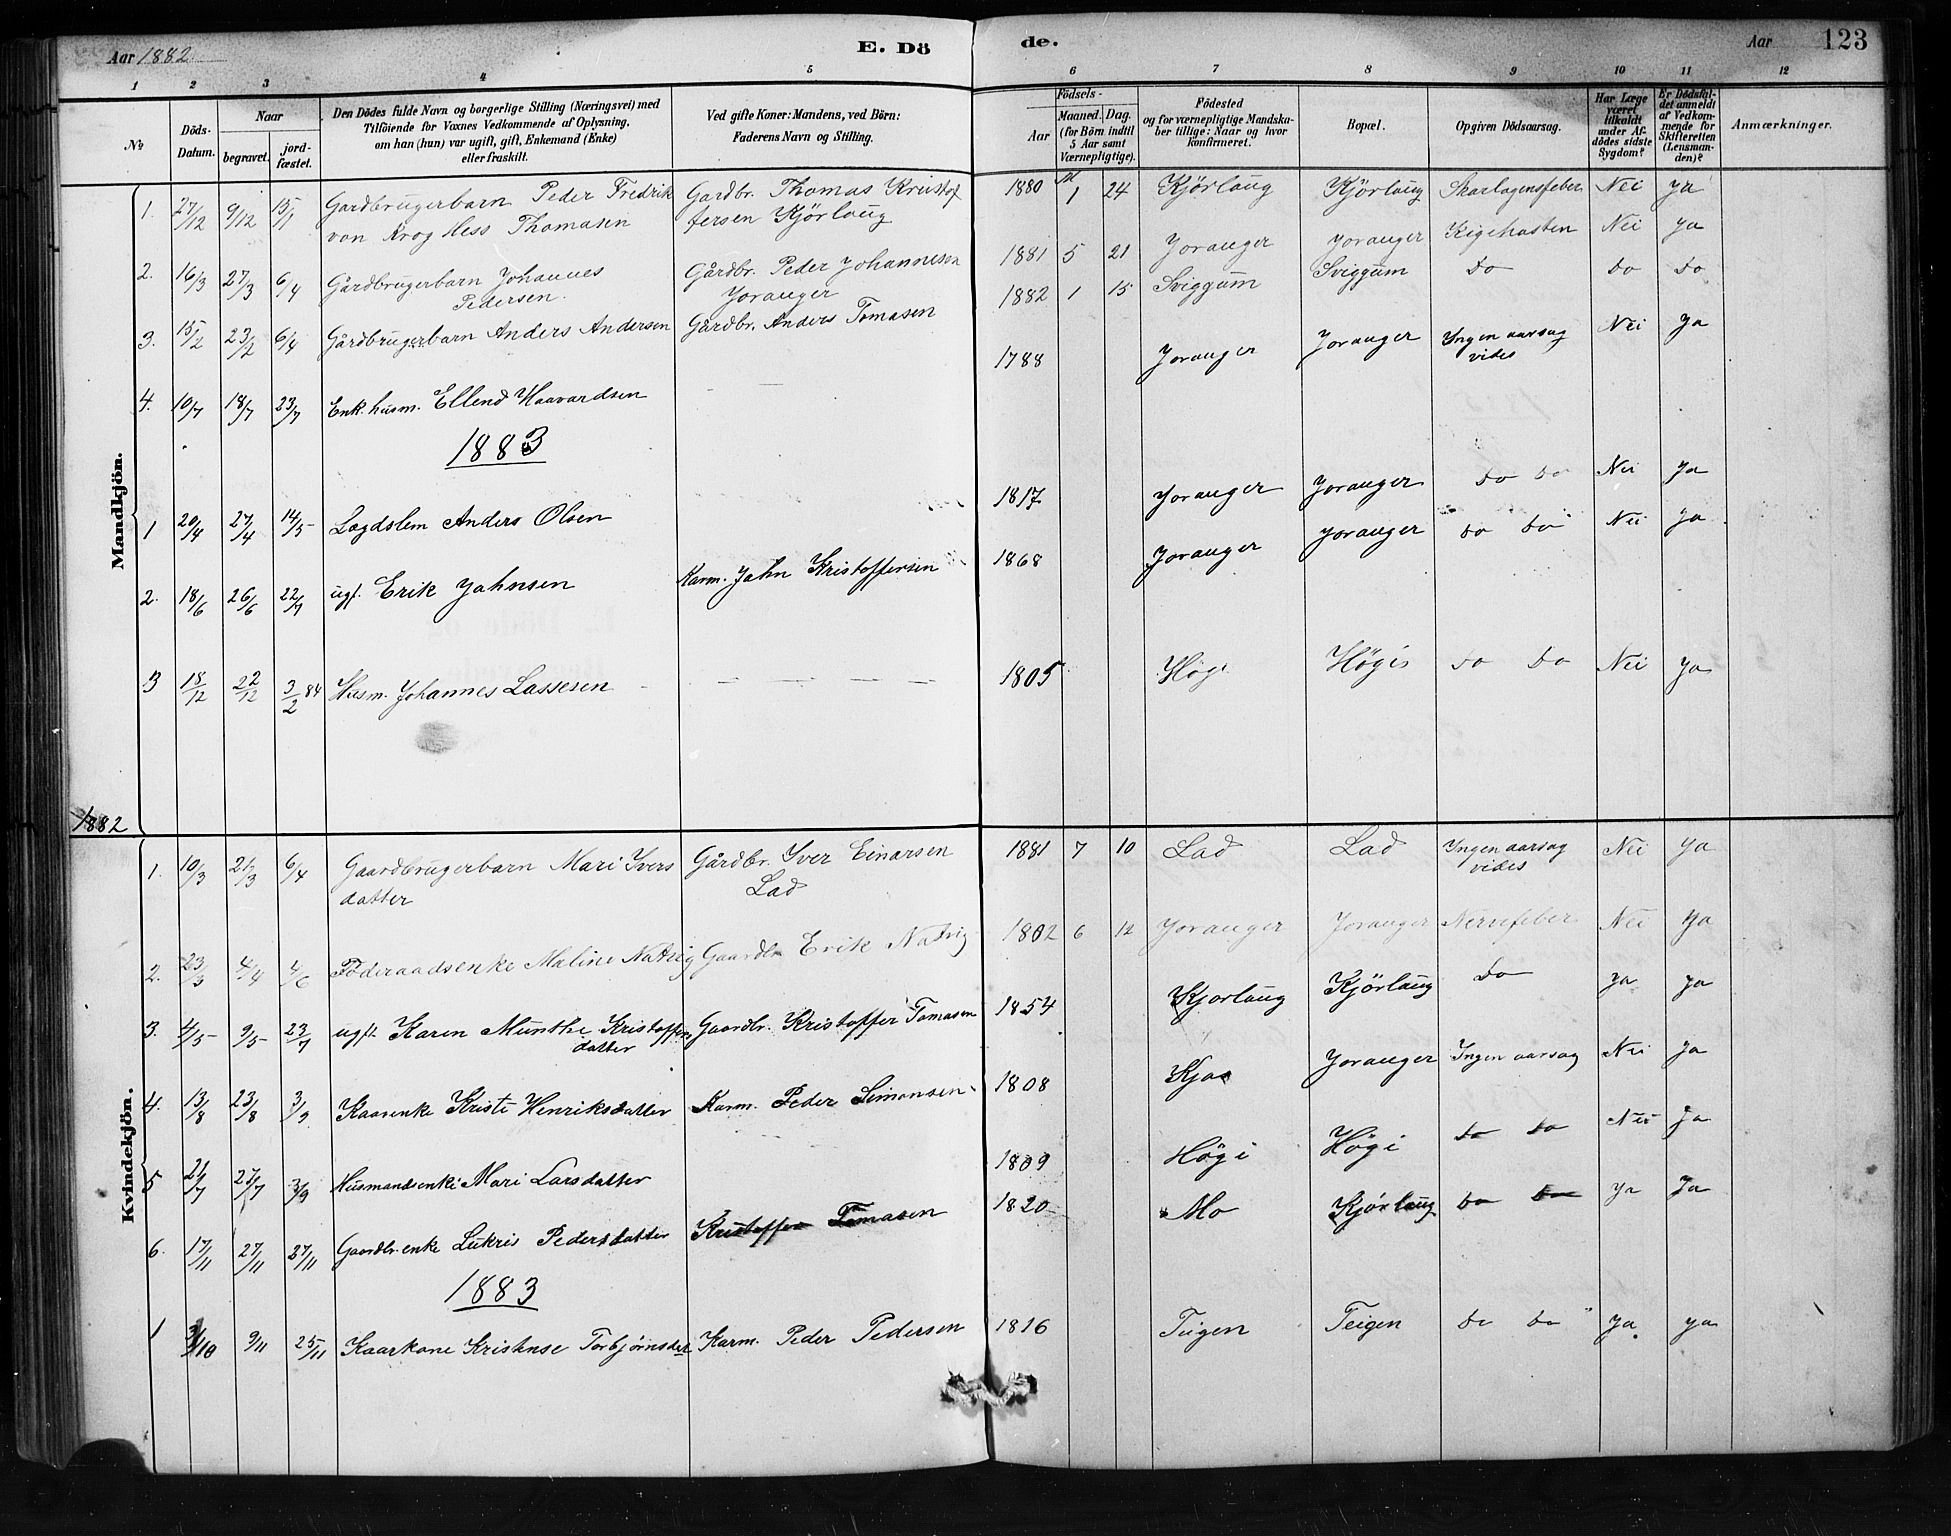 Aar 1882 E. Dö de. Aar 123
1 2 3 4 5 6 7 8 9 10 11 12
No
Döds-Datum.
Naar
begravet.
jord-fæstet.
Den Dödes fulde Navn og borgerlige Stilling (Næringsvei) med
Tilföiende for Voxnes Vedkommende af Oplysning,
om han (hun) var ugift, gift, Enkemand (Enke)
eller fraskilt.
Ved gifte Koner: Mandens, ved Börn:
Faderens Navn og Stilling.
Födsels-
Aar
Maaned. Dag.
(for Börn indtil
5 Aar samt
Værnepligtige).
Födested
og for værnepligtige Mandska-
ber tillige: Naar og hvor
konfirmeret.
Bopæl.
Opgiven Dödsaarsag.
Har Læge
været
tilkaldt
under Af-
dödes sidste
Sygdom?
Er Dödsfal-
det anmeldt
af Vedkom-
mende for
Skifteretten
(Lensman-
den)?
Anmærkninger.
Mandkjön.
1. 27/12 9/12 15/1 Gardbrugerbarn Peder Fredrik Gardbr. Thomas Kristof 1880 1 24 Kjörlaug Kjörlaug Skarlagensfeber Nei Ja
von Krog Hess Thomasen fersen Kjörlaug
2. 16/3 27/3 6/4 Gårdbrugerbarn Johannes Gårdbr. Peder Johannesen 1881 5 21 Joranger Joranger Kigehosten Nei Ja
Pedersen. Joranger
3. 15/2 23/2 6/4 Gårdbrugerbarn Anders Andersen Gårdbr. Anders Tomasen 1882 1 15 Sviggum Sviggum Do Do Do
4. 10/7 18/7 23/7 Enk. husm. Ellend Haavardsen 1788 Joranger Joranger Ingen aarsag Nei Ja
vides
1883
1 20/4 27/4 14/5 Lægdslem Anders Olsen 1817 Joranger Joranger Do Do Nei Ja
2. 18/6 26/6 22/7 ugf. Erik Jahnsen Karm. Jahn Kristoffersen 1868 Joranger Joranger Do Do Nei Ja
3 18/12 22/12 3/2 84 Husm. Johannes Lassesen 1805 Högi Högis Do Do Nei Ja
1882
Kvindekjön.
1. 10/3 21/3 6/4 Gaardbrugerbarn Mari Ivers Gårdbr. Iver Einarsen 1881 7 10 Lad Lad Ingen aarsag Nei Ja
datter Lad vides
2. 23/3 4/4 4/6 Föderaadsenke Maline Natvig Gaardbr Erik Natvig 1802 6 12 Joranger Joranger Nervefeber Nei Ja
3. 4/5 9/5 23/7 ugft. Karen Munthe Kristoffers Gaardbr. Kristoffer Tomasen 1854 Kjorlaug Kjörlaug Do Ja Ja
datter
4. 13/8 23/8 3/9 Kaarenke Kristi Henriksdatter Karm. Peder Simonsen 1808 Kjos Joranger Ingen aarsag Nei Ja
5 21/7 27/7 3/9 Husmandsenke Mari Larsdatter 1809 Högi Högi Do Do Nei Ja
6. 17/11 27/11 27/11 Gaardbr. enke Lukris Pedersdatter Kristoffer Tomasen 1820 Mo Kjörlaug Do Do Ja Ja
1883
1 31/10 9/11 25/11 Kaarkone Kristense Torbjørnsdet Karm. Peder Pedersen 1816 Teigen Teigen Do Do Ja Ja